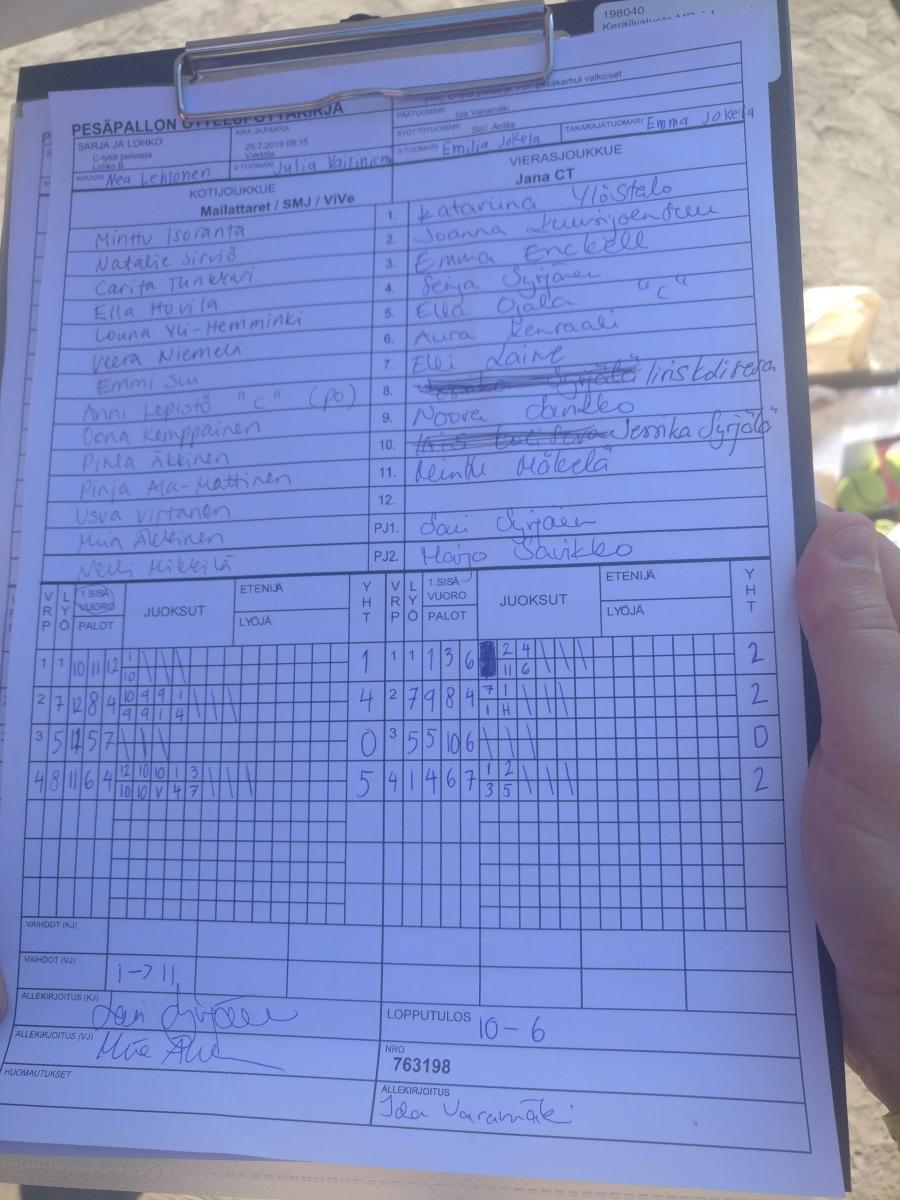 198040
PESÄPALLON OTTELUPÖYTÄKIRJA
SARJA JA LOHKO
C-tytöt pelisarja
Lohko B
AIKA JA PAIKKA
25.7.2019 09:15
Viertola
KIRJURI Nea Lehtonen
2-TUOMARI Julia Vairinien
karhut valkoiset
PÄÄTUOMARI Ida Varamäki
SYÖTTÖTUOMARI Siiri Anttila
TAKARAJATUOMARI Emma Jokela
3-TUOMARI Emilia Jokela
KOTIJOUKKUE
Mailattaret / SMJ / ViVe
VIERASJOUKKUE
Jana CT
Minttu Isoranta 1. Katariina Ylöstalo
Natalie Sirviö 2. Joanna
Carita Tunkkari 3. Emma Enckell
Ella Hovila 4. Senja Syrjänen
Louna Yli-Hemminki 5. Ella Ojala "C"
Veera Niemelä 6. Aura Kenraali
Emmi Sui 7. Elli Laine
Anni Lepistö "C" (po) 8. Iiris
Oona Kemppainen 9. Noora
Pihla Äkkinen 10. Jessika Syrjälä
Pinja Ala-Mattinen 11. Minttu Mäkelä
Usva Virtanen 12.
Miia Äkkinen PJ1. Sari Syrjänen
Nelli Mikkilä PJ2. Marjo Savikko
VRP LYÖ 1.SISÄ VUORO PALOT JUOKSUT ETENIJÄ LYÖJÄ YHT VRP LYÖ 1.SISÄ VUORO PALOT JUOKSUT ETENIJÄ LYÖJÄ YHT
1 1 10 11 12 1 1 1 1 1 3 6 2 4 2
10 11 6
2 7 12 8 4 10 9 9 1 4 2 7 9 8 4 7 1 2
9 9 1 4 1 H
3 5 5 7 0 3 5 5 10 6 0
4 8 11 6 4 12 10 10 1 3 5 4 1 4 6 7 1 2 2
10 10 V 4 7 3 5
VAIHDOT (KJ)
VAIHDOT (VJ) 1 -> 11
ALLEKIRJOITUS (KJ) Sari Syrjänen
LOPPUTULOS 10 - 6
ALLEKIRJOITUS (VJ) Miia
NRO
763198
HUOMAUTUKSET
ALLEKIRJOITUS
Ida Varamäki